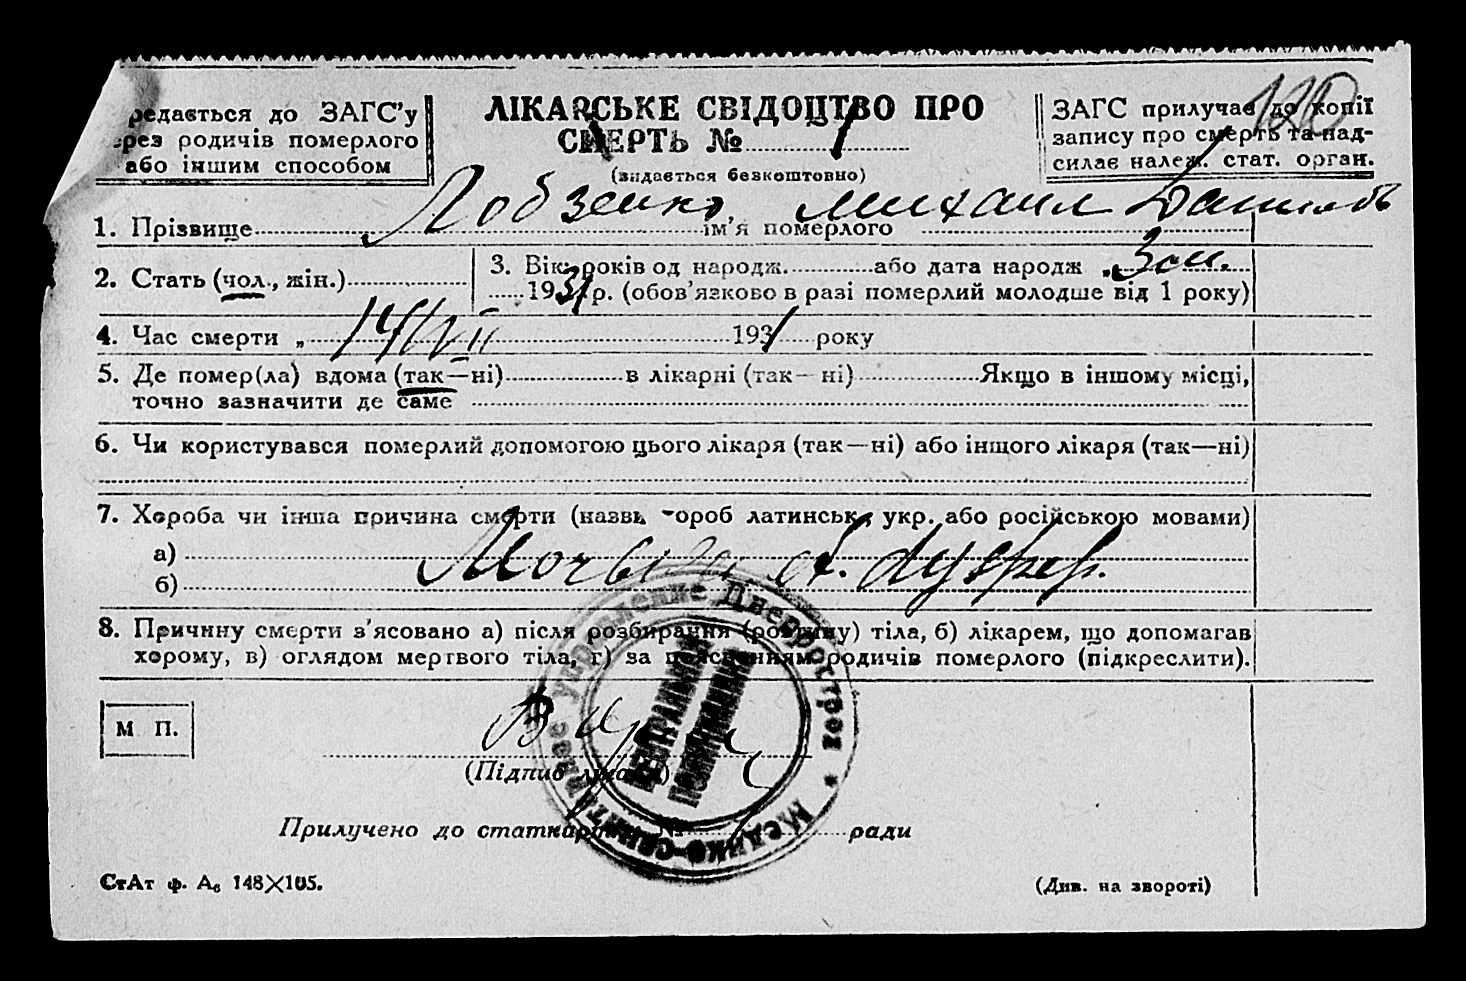 редається до ЗАГС'у
рез родичів померлого
або іншим способом
ЛІКАРСЬКЕ СВІДОЦТВО ПРО
СМЕРТЬ №
(видається безкоштовно)
ЗАГС прилучає до копії
запису про смерть та над-
силає належ. стат. орган.
120
1. Прізвище Лобзенко, ім'я померлого Михаил
2. Стать (чол., жін.)
3. Вік: років од народж. або дата народж „
1931 р. (обов'язково в разі померлий молодше від 1 року)
4. Час смерти „ 14/VII 1931 року
5. Де помер(ла) вдома (так—ні) в лікарні (так—ні) Якщо в іншому місці,
точно зазначити де саме
6. Чи користувався померлий допомогою цього лікаря (так—ні) або іншого лікаря (так—ні)
7. Хороба чи інша причина смерти (назви хороб латинськ., укр. або російською мовами)
а)
б)
8. Причину смерти з'ясовано а) після розбирання (розтину) тіла, б) лікарем, що допомагав
хорому, в) оглядом мертвого тіла, г) за поясненням родичів померлого (підкреслити).
М П.
(Підпис лікаря)
Медико-санитарное управление Днепростроя
ЦЕНТРАЛЬНАЯ
ПОЛИКЛИНИКА
Прилучено до статкартки № ради
СтАт ф. А₆ 148×105.
(Див. на звороті)